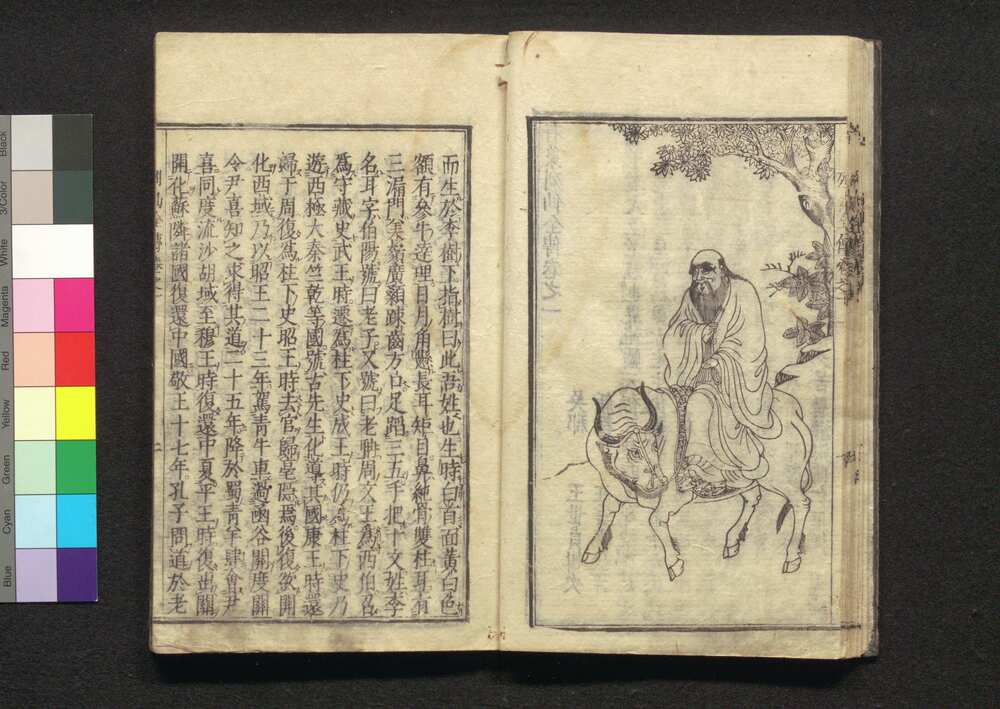 而生於李樹下指樹曰此吾姓也生時白首面黃白色
額有參牛達理日月角懸長耳矩目鼻純骨雙柱耳有
三漏門美鬚廣顙疎齒方口足蹈三五手把十文姓李
名耳字伯陽號曰老子又號曰老聃周文王爲西伯召
爲守藏史武王時遷爲柱下史成王時仍爲柱下史乃
遊西極大秦竺乾等國號古先生化導其國康王時還
歸于周復爲柱下史昭王時去官歸亳隱焉後復欲開
化西域乃以昭王二十三年駕青牛車過函谷關度關
令尹喜知之求得其道二十五年降於蜀青羊肆會尹
喜同度流沙胡域至穆王時復還中夏平王時復出關
開化蘇隣諸國復還中國敬王十七年孔子問道於老
Black
3/Color
White
Magenta
Red
Yellow
Green
Cyan
Blue